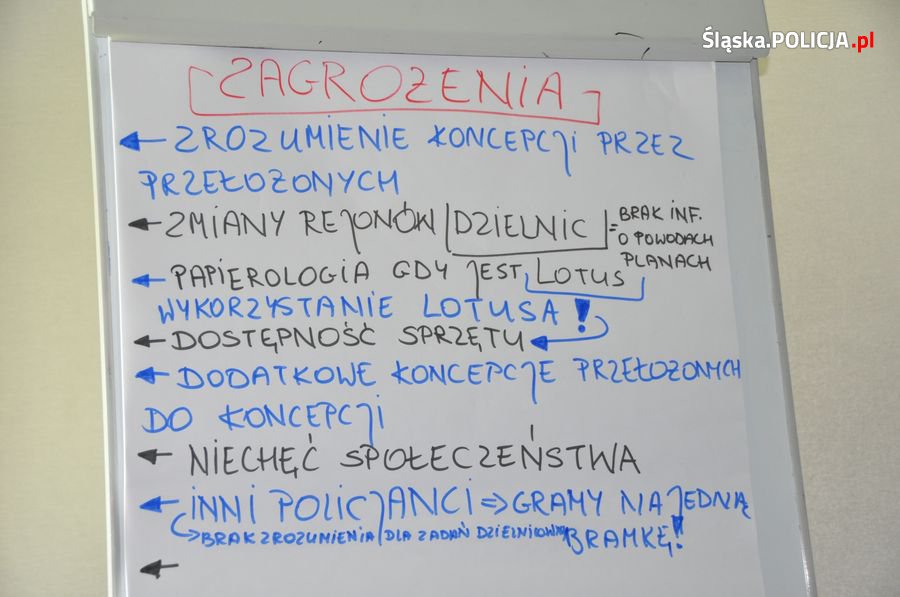 Śląska.POLICJA.pl
ZAGROŻENIA
← ZROZUMIENIE KONCEPCJI PRZEZ
PRZEŁOŻONYCH
← ZMIANY REJONÓW/DZIELNIC = BRAK INF.
O POWODACH
PLANACH
← PAPIEROLOGIA GDY JEST LOTUS
WYKORZYSTANIE LOTUSA!
← DOSTĘPNOŚĆ SPRZĘTU
← DODATKOWE KONCEPCJE PRZEŁOŻONYCH
DO KONCEPCJI
← NIECHĘĆ SPOŁECZEŃSTWA
← INNI POLICJANCI => GRAMY NA JEDNĄ
BRAMKĘ!
→ BRAK ZROZUMIENIA / DLA ZADAŃ DZIELNICOWYCH
←